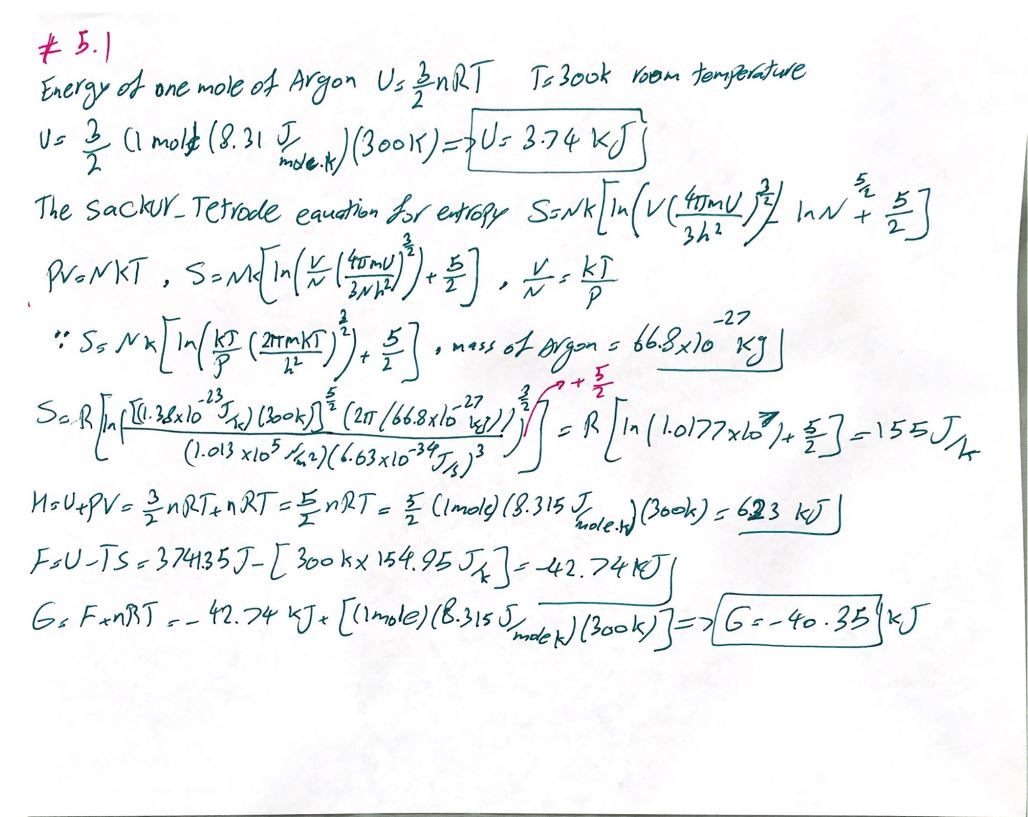 # 5.1
Energy of one mole of Argon U = 3/2 nRT T = 300k room temperature
U = 3/2 (1 mole) (8.31 J/mole.k)(300k) => U = 3.74 kJ
The Sackur_Tetrode equation for entropy S = Nk[ln(V(4πmU/3h²)^3/2) - ln N^5/2 + 5/2]
PV = NkT , S = Nk[ln(V/N (4πmU/3Nh²)^3/2) + 5/2] , V/N = kT/P
∵ S = Nk[ln(kT/P (2πmkT/h²)^3/2) + 5/2] , mass of Argon = 66.8x10^-27 kg
S = R[ln([(1.38x10^-23 J/k)(300k)]^5/2 (2π(66.8x10^-27 kg))^3/2 / (1.013x10^5 N/m²)(6.63x10^-34 J/s)^3) + 5/2] = R[ln(1.0177x10^7) + 5/2] = 155 J/k
H = U + PV = 3/2 nRT + nRT = 5/2 nRT = 5/2 (1mole)(8.315 J/mole.k)(300k) = 6.23 kJ
F = U - TS = 3741.35 J - [300k x 154.95 J/k] = -42.74 kJ
G = F + nRT = -42.74 kJ + [(1mole)(8.315 J/mole k)(300k)] => G = -40.35 kJ